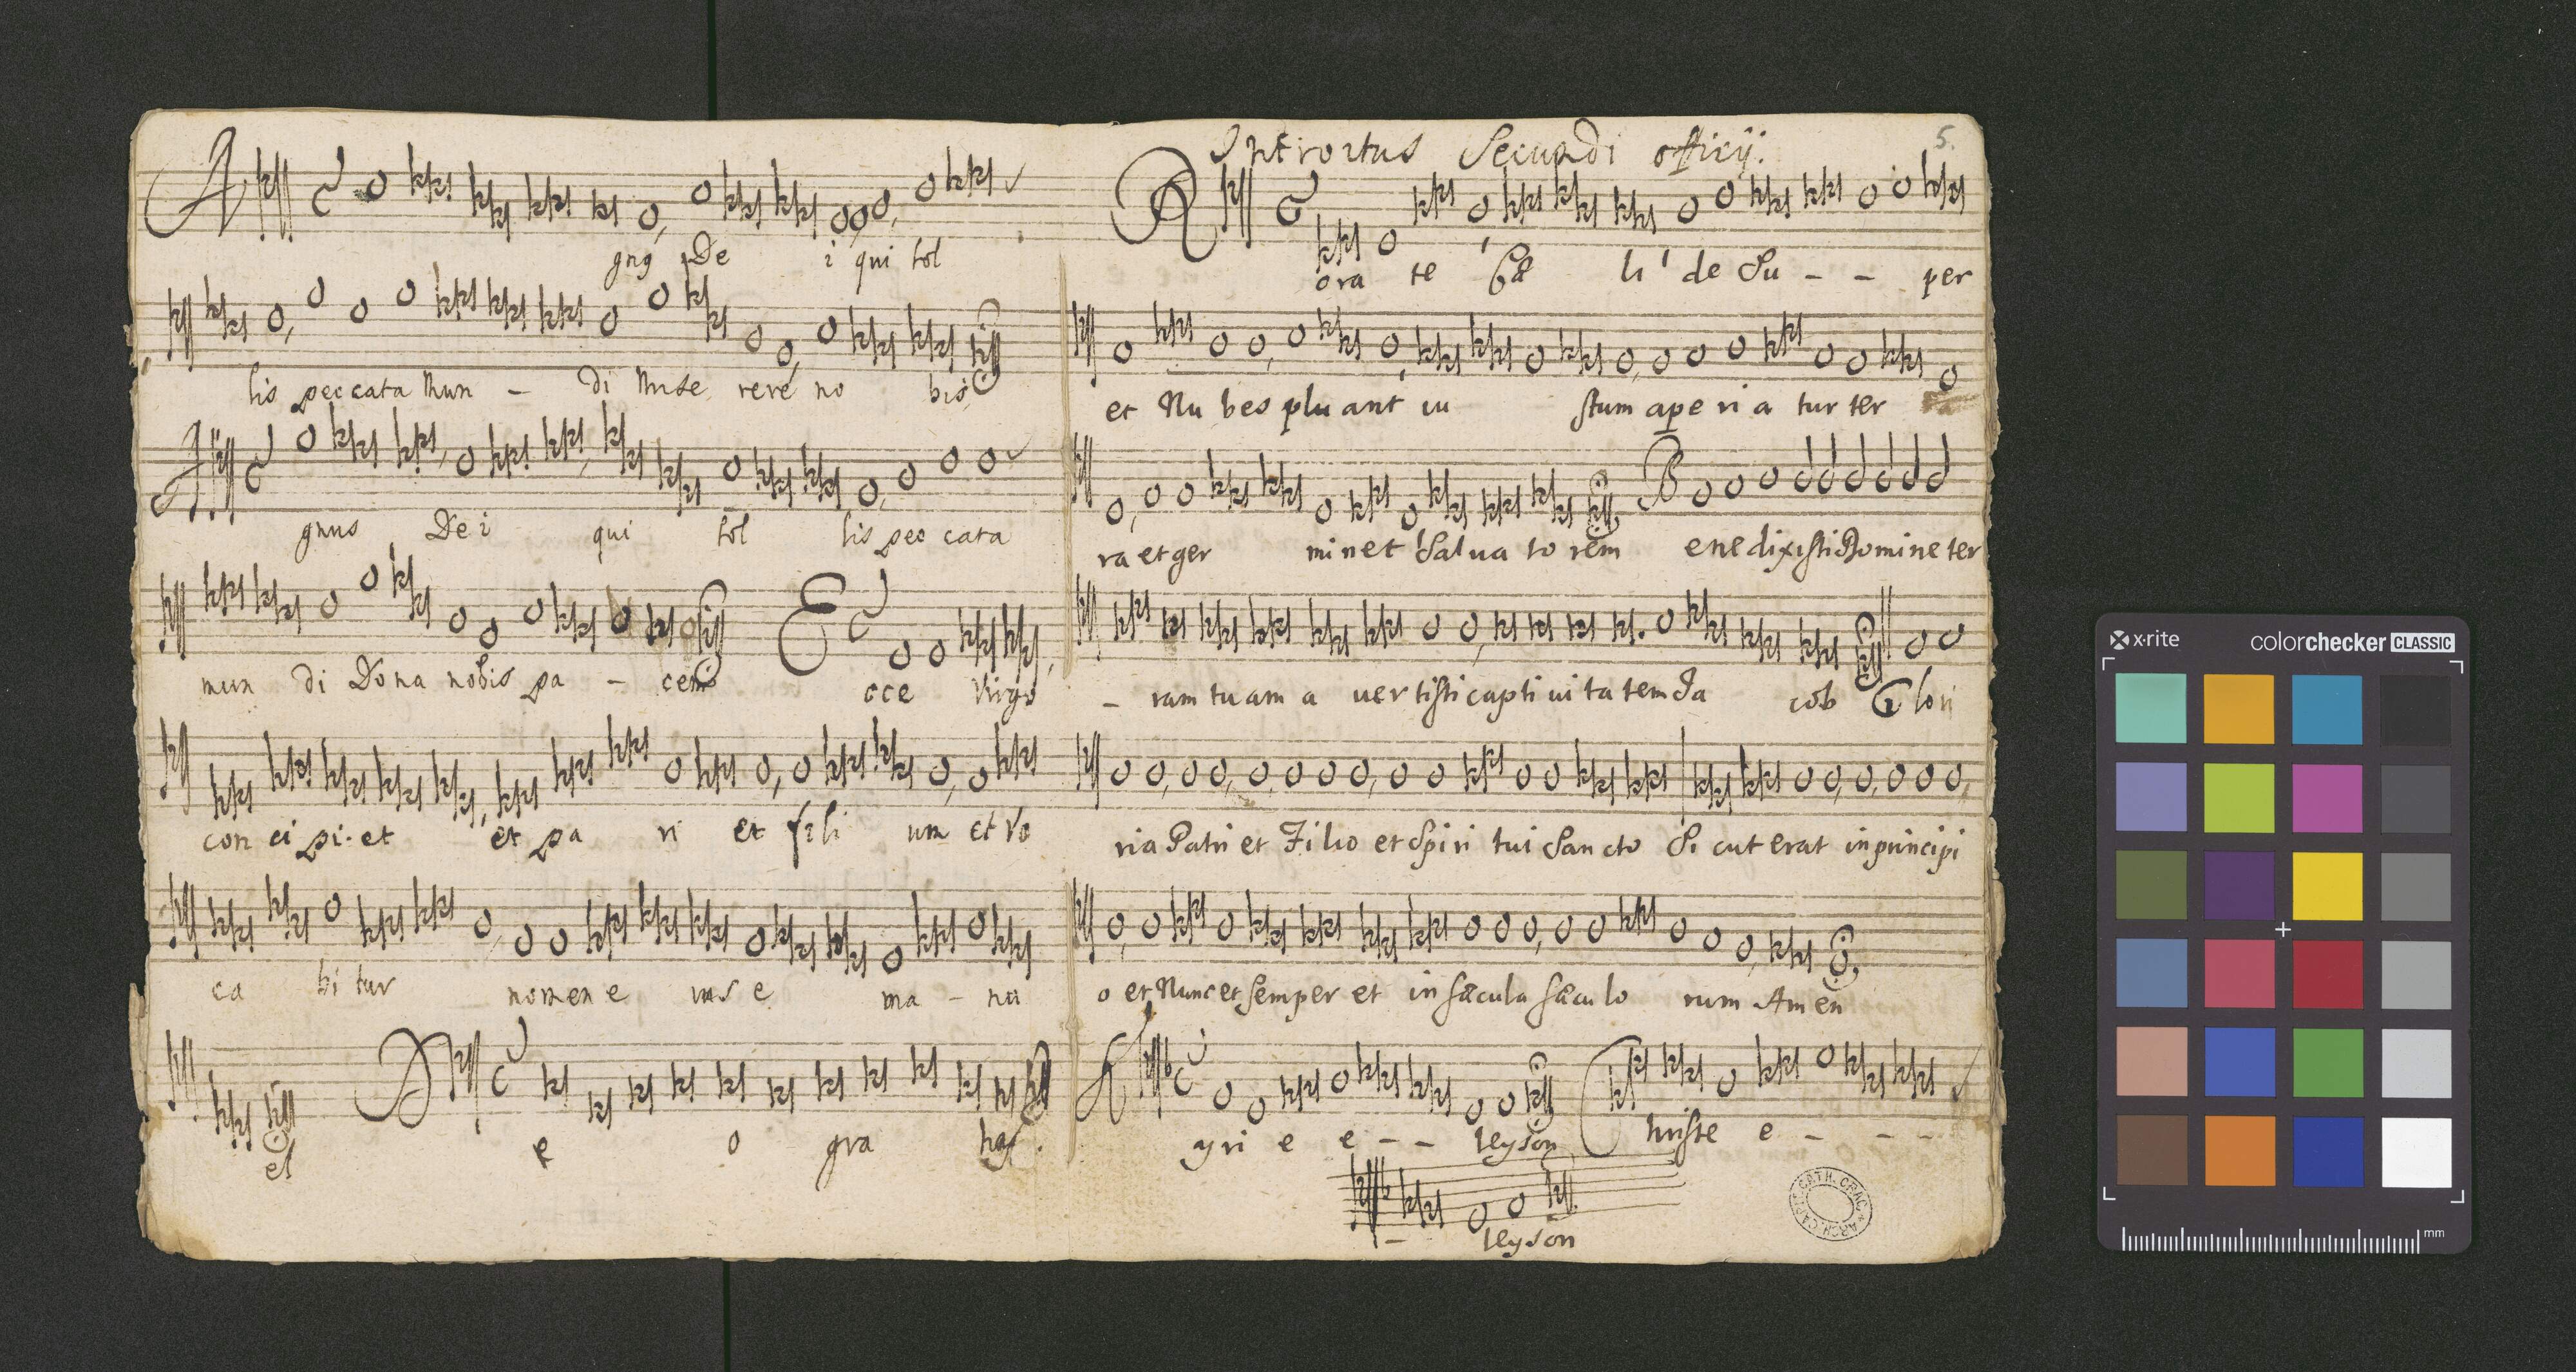 A
gnꝯ De i qui tol
lis peccata Mun - di Mise rere no bis
A
gnus Dei qui tol lis pec cata
E
mun di Dona nobis pa - cem cce Virgo
con ci pi et et pa ri et fili um et Vo
ca bi tur nomen e ius e ma - nu
el
D
e o gra has.
5.
Introitus Secundi officij.
R
ora te Cæ li de Su - - per
et Nu bes pluant iu stum ape ri a tur ter ra
B
ra et ger minet Salua to rem enedixisti Domine ter
- ram tuam a uertisti captiui ta tem Ja cob Glori
ria Patri et Filio et Spiri tui Sancto Si cut erat in principi
o et Nunc et semper et in sæcula sæculo rum Amen
K
yri e e - - leyson Christe e - - -
- leyson
ARCH. CAPIT. CATH. CRAC.
x-rite
colorchecker CLASSIC
mm